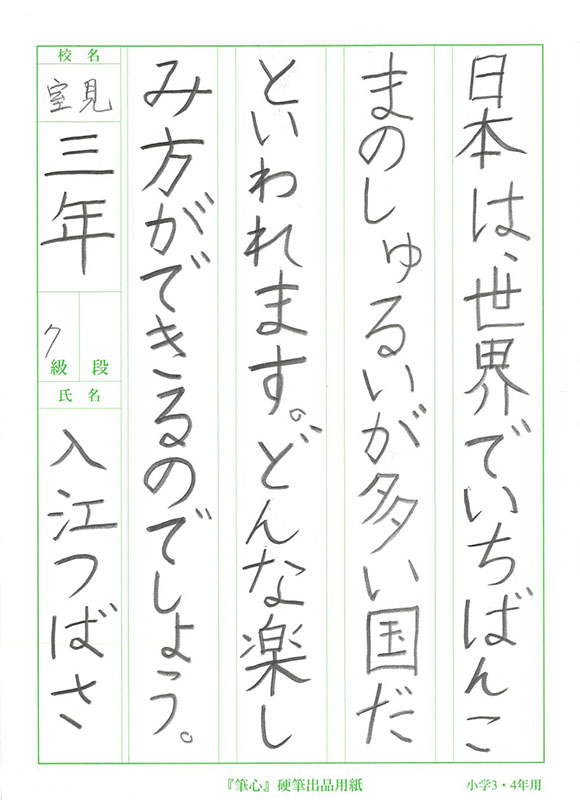 日本は、世界でいちばんこ
まのしゅるいが多い国だ
といわれます。どんな楽し
み方ができるのでしょう。
校名
室見
三年
段
級
7
氏名
入江つばさ
『筆心』硬筆出品用紙
小学3・4年用